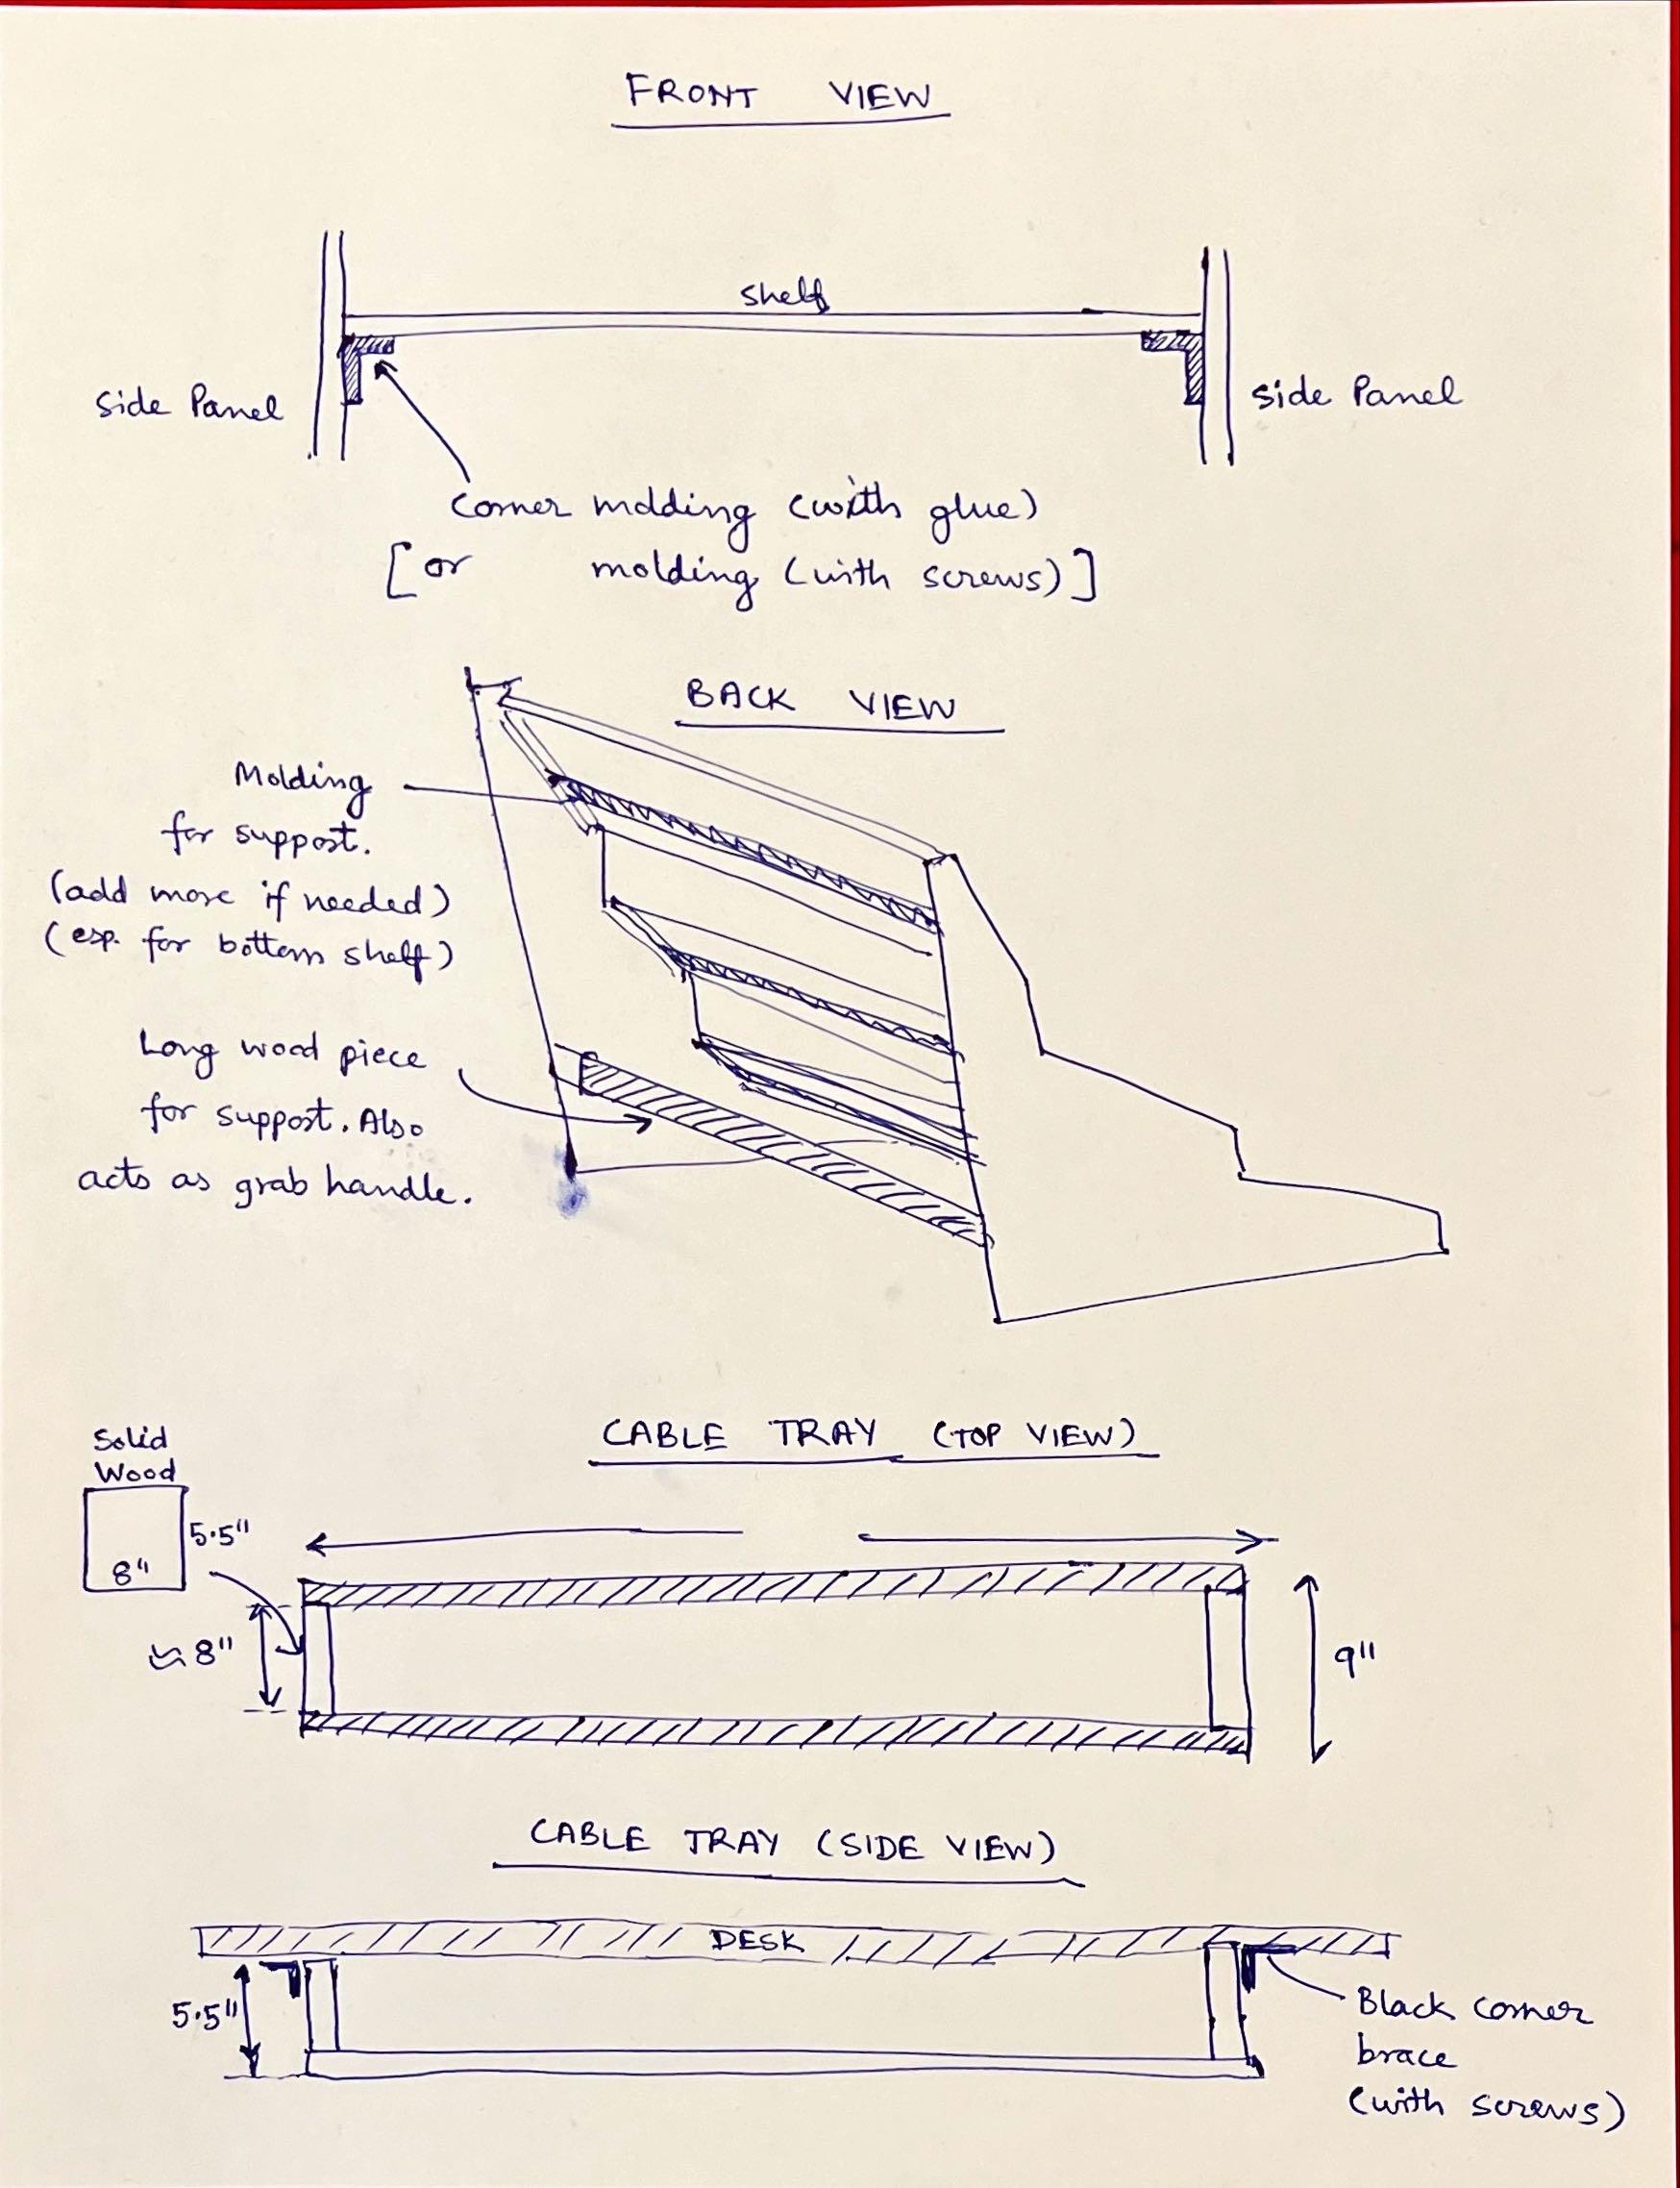 FRONT VIEW
shelf
Side Panel
Side Panel
Corner molding (with glue)
[or molding (with screws)]
BACK VIEW
Molding
for support.
(add more if needed)
(esp. for bottom shelf)
Long wood piece
for support. Also
acts as grab handle.
CABLE TRAY (TOP VIEW)
Solid
Wood
5.5"
8"
≈ 8"
9"
CABLE TRAY (SIDE VIEW)
DESK
5.5"
Black corner
brace
(with screws)